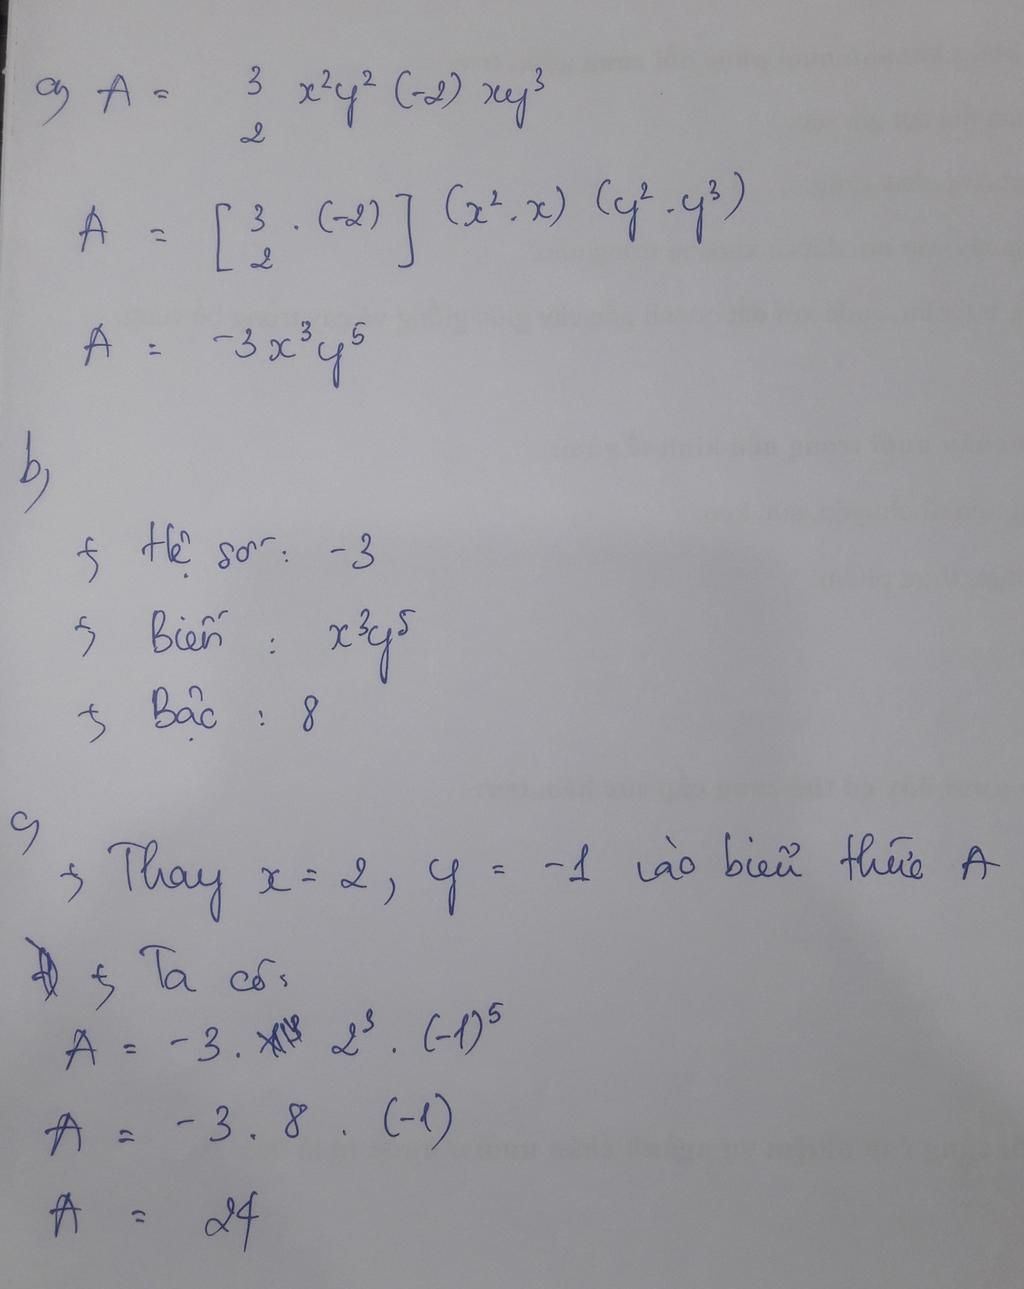 a) A = 3 x²y² (-2) xy³
2
A = [ 3 . (-2) ] (x² . x) (y² . y³)
2
A = -3x³y⁵
b)
Hệ số : -3
Biến : x³y⁵
Bậc : 8
c)
Thay x = 2, y = -1 vào biểu thức A
Ta có:
A = -3 . 2³ . (-1)⁵
A = -3 . 8 . (-1)
A = 24